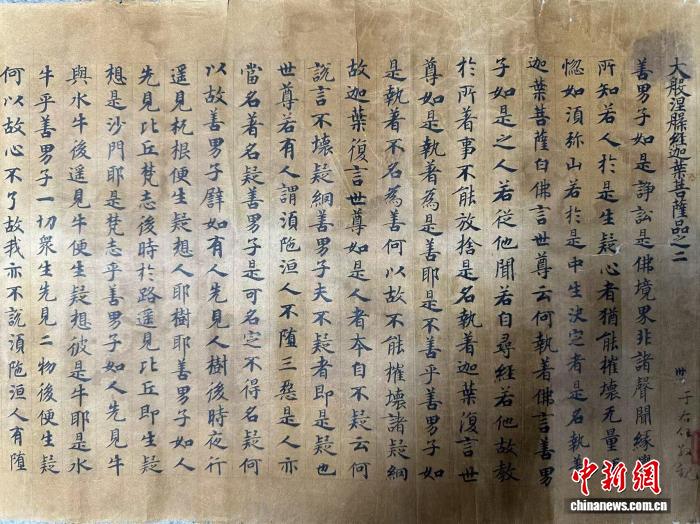 大般涅槃經迦葉菩薩品之二
善男子如是諍訟是佛境界非諸聲聞緣
所知若人於是生疑心者猶能摧壞无量
惱如須弥山若於是中生決定者是名執著
迦葉菩薩白佛言世尊云何執著佛言善男
子如是之人若從他聞若自尋經若他故教
於所著事不能放捨是名執著迦葉復言世
尊如是執著為是善耶是不善乎善男子如
是執著不名為善何以故不能摧壞諸疑網
故迦葉復言世尊如是人者本自不疑云何
說言不壞疑網善男子夫不疑者即是疑也
世尊若有人謂須陁洹人不墮三惡是人亦
當名著名疑善男子是可名定不得名疑何
以故善男子譬如有人先見人樹後時夜行
遥見杌根便生疑想人耶樹耶善男子如人
先見比丘梵志後時於路遥見比丘即生疑
想是沙門耶是梵志乎善男子如人先見牛
與水牛後遥見牛便生疑想彼是牛耶是水
牛乎善男子一切衆生先見二物後便生疑
何以故心不了故我亦不說須陁洹人有墮
中新网
chinanews.com